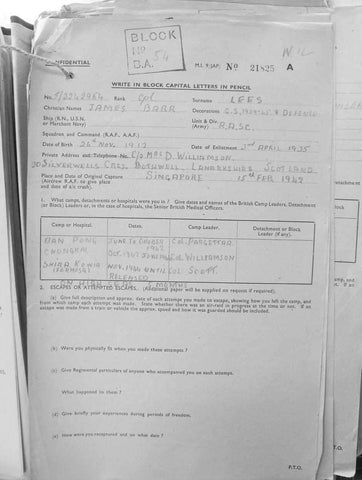 BLOCK
No 54
B.A.
NIL
CONFIDENTIAL
M.I. 9/JAP/ No 21825 A
WRITE IN BLOCK CAPITAL LETTERS IN PENCIL
No. T/2242964 Rank Cpl Surname LEES
Christian Names JAMES BARR Decorations G.S. 1939-45 & DEFENCE
Ship (R.N., U.S.N.
or Merchant Navy) Unit & Div.
(Army) R.A.S.C.
Squadron and Command (R.A.F., A.A.F.)
Date of Birth 26th NOV 1912 Date of Enlistment 2nd APRIL 1935
Private Address and Telephone No. C/o MRS D. WILLIAMSON,
30 SILVERWELLS CRES. BOTHWELL, LANARKSHIRE SCOTLAND
Place and Date of Original Capture SINGAPORE 15th FEB 1942
(Aircrew R.A.F. to give place
and date of a/c crash).
1. What camps, detachments or hospitals were you in ? Give dates and names of the British Camp Leaders, Detachment
(or Block) Leaders or, in the case of hospitals, the Senior British Medical Officers.
Camp or Hospital. Dates. Camp Leader. Detachment or Block
Leader (if any).
BAN PONG JUNE TO OCTOBER 1942 COL.
CHONGKAI OCT. 1942 COL. WILLIAMSON
(FORMOSA) NOV. 1944 UNTIL RELEASED COL. SCOTT.
2. ESCAPES OR ATTEMPTED ESCAPES. (Additional paper will be supplied on request if required).
(a) Give full description and approx. date of each attempt you made to escape, showing how you left the camp, and
from which camp each attempt was made. State whether there was an all-risk in progress at the time or not. If an
escape was made from a train or vehicle the approx. speed and how it was guarded should be included.
(b) Were you physically fit when you made these attempts ?
(c) Give Regimental particulars of anyone who accompanied you on each attempt.
What happened to them ?
(d) Give briefly your experiences during periods of freedom.
(e) How were you recaptured and on what date ?
P.T.O.
P.T.O.